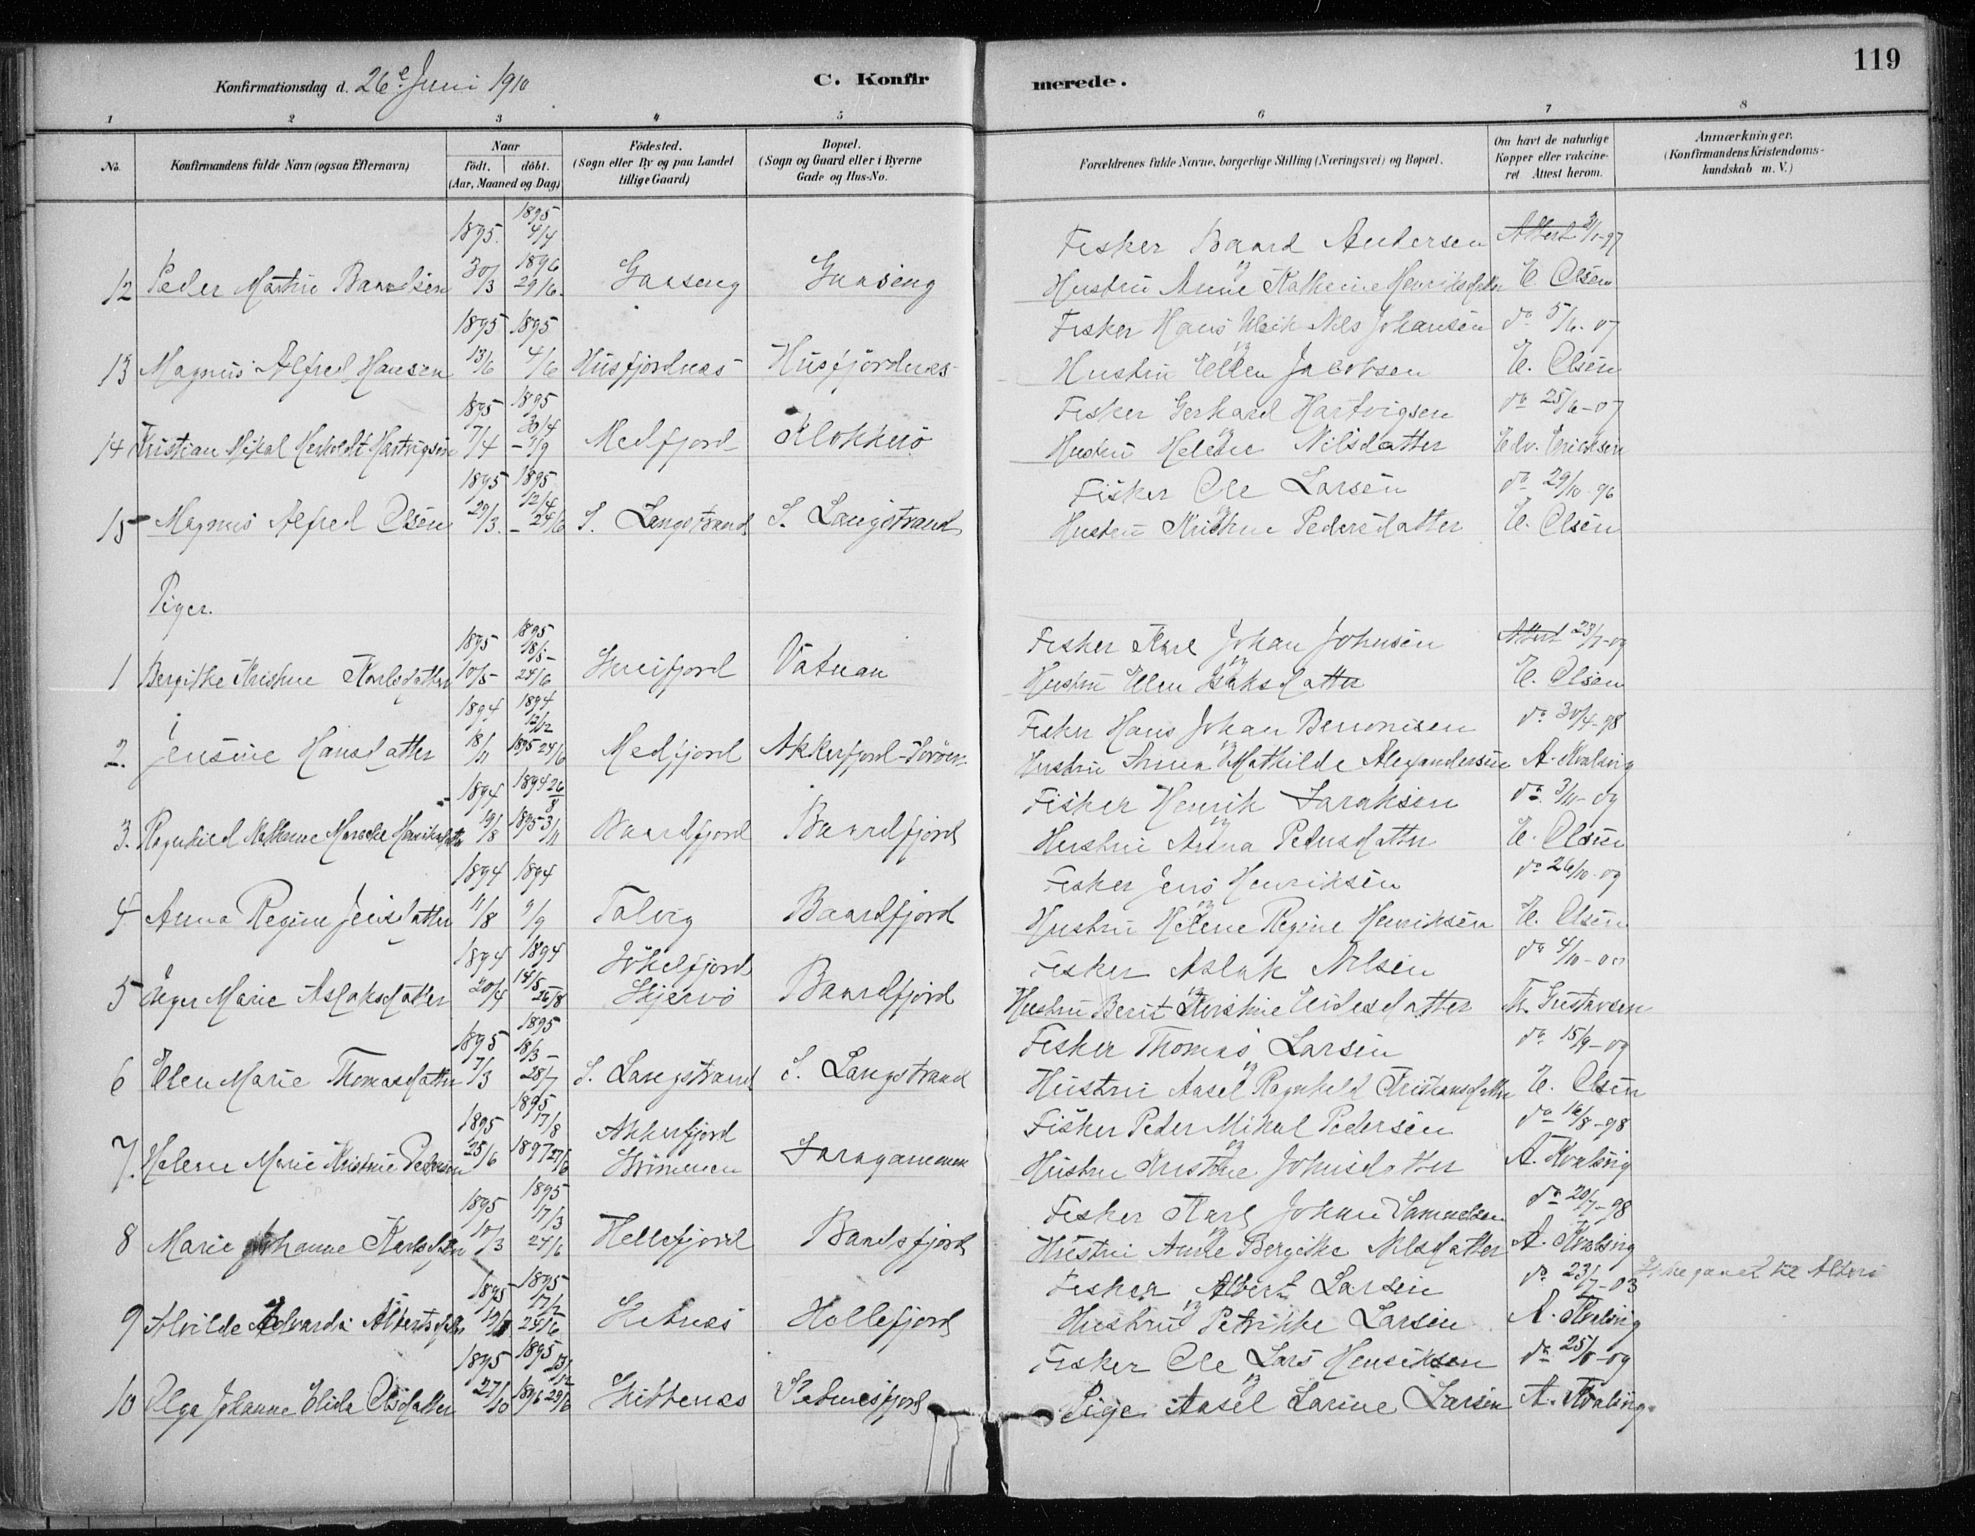 119
Konfirmationsdag d. 26e Juni 1910
C. Konfirmerede.
1 2 3 4 5 6 7 8
No. Konfirmandens fulde Navn (ogsaa Efternavn) Naar født. døbt. (Aar, Maaned og Dag) Fødested. (Sogn eller By og paa Landet tillige Gaard) Bopæl. (Sogn og Gaard eller i Byerne Gade og Hus-No. Forældrenes fulde Navne, borgerlige Stilling (Næringsvei) og Bopæl. Om havt de naturlige Kopper eller vakcineret. Attest herom. Anmærkninger. (Konfirmandens Kristendomskundskab m. V.)
1895. 1895 4/4 Fisker Baard Andersen Attest
12 Peder Martin Baardsen 30/3 1896 29/6. Gaaseng Gaaseng og Hustru Anne Kathrine Henriksdatter E. Olsen
1895 1895 Fisker Hans Ulrik Nils Johansen do 5/6-07
13 Magnus Alfred Hansen 13/6 4/6 Husfjordnæs Husfjordnæs og Hustru Ellen Jacobsen E. Olsen
1895 1895 20/4 Fisker Gerhard Hartvigsen do 25/6-07
14 Kristian Mikal Herholdt Hartvigsen 7/4 Medfjord Klokkerø og Hustru Helene Nilsdatter Edv. Ericksen
1895 1895 12/4 Fisker Ole Larsen do 29/10 96
15 Magnus Alfred Olsen 29/3. - 24/6 S. Langstrand S. Langstrand og Hustru Kristine Pedersdatter E. Olsen
Piger.
1895 1895 18/5- Fisker Karl Johan Johnsen Attest 23/7-09
1 Bergitke Kristine Karlsdatter 10/5 24/6 Snefjord Vatnan og Hustru Ellen Isaksdatter E. Olsen
1894 1894 12/12 Fisker Hans Johan Beronisen do 30/4-98
2. Jensine Hansdatter 18/11 1895 24/6 Medfjord Akkerfjord-Sørøen og Hustru Anna Mathilde Alexandersen A. Kvalsvig
1894 1894 26/8 Fisker Henrik Saraksen do 3/11-09
3. Ragnhild Kathrine Marache Henriksdatter 19/8 1895 3/11 Baardfjord Baardfjord og Hustru Anna Pedersdatter E. Olsen
1894 1894 Fisker Jens Henriksen do 26/10-09
4 Anna Regine Jensdatter 11/8 9/9 Talvig Baardfjord og Hustru Helene Regine Henriksen E. Olsen
1894 1894 14/5 Jøkelfjord Fisker Aslak Nilsen do 4/10-00
5 Inger Marie Aslaksdatter 20/4 26/8 Skjervø Baardfjord og Hustru Berit Kirstine Eidesdatter Th. Gustavsen
1895 1895 18/3- Fisker Thomas Larsen do 15/9-09
6 Elen Marie Thomasdatter 7/3 28/7 S. Langstrand S. Langstrand og Hustru Aasel Ragnhild Kristiansdatter E. Olsen
1895 1895 17/8 Akkerfjord Fisker Peder Mikal Pedersen do 16/8-98
7. Helene Marie Kristine Pedersen 25/6 1897 27/6 Saragammen og Hustru Kristine Johnsdatter A. Kvalsvig
1895 1895 17/3 Fisker Karl Johan Samuelsen do 20/7-98
8 Marie Johanne Karlsdatter 10/3 24/6 Hellefjord Baardfjord og Hustru Anne Bergitke Nilsdatter A. Kvalsvig
1895 1895 17/2 Fisker Albert Larsen do 23/7-03
9 Alvilde Edvarda Albertsdatter 24/6 Hellefjord og Hustru Petrikke Larsen A. Kvalsvig
1895 1895 Fisker Ole Lars Henriksen do
10 Olga Johanne Elida Olsdatter 27/10 1896 29/6 og Pige Aasel Larine Larsen A. Kvalsvig.